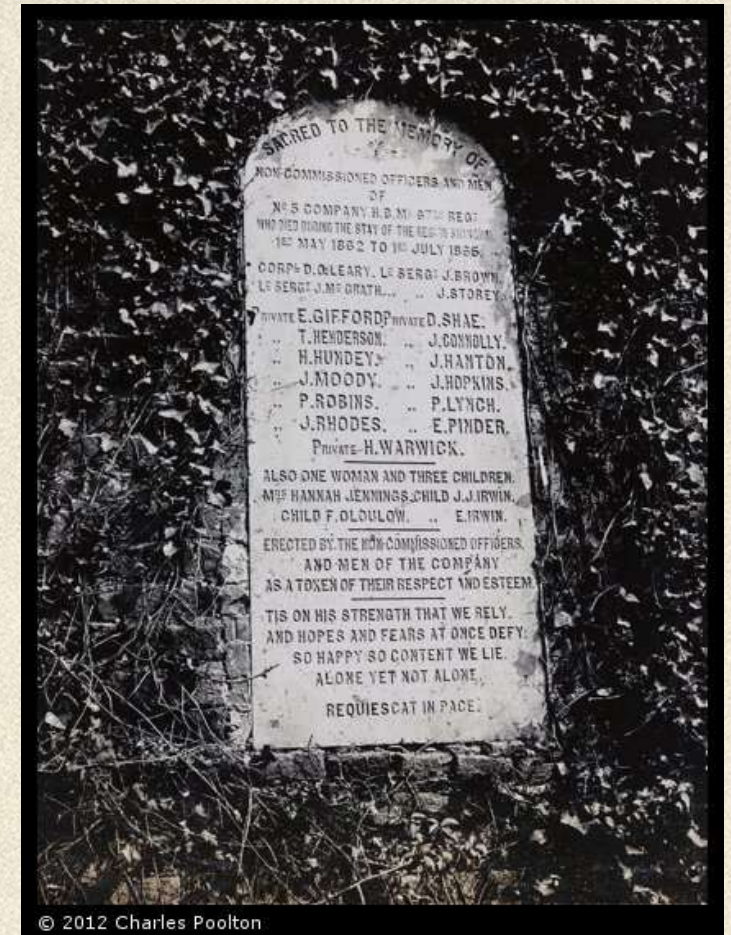 SACRED TO THE MEMORY OF
NON-COMMISSIONED OFFICERS AND MEN
OF
No 5 COMPANY H.B.Ms 67th REGT
WHO DIED DURING THE STAY OF THE REGT IN SHANGHAI
1st MAY 1862 TO 1st JULY 1865.
CORPL D.O.LEARY. Le SERGT J.BROWN.
Le SERGT J.Mc GRATH. „ „ J.STOREY.
PRIVATE E.GIFFORD. PRIVATE D.SHAE.
„ T.HENDERSON. „ J.CONNOLLY.
„ H.HUNDEY. „ J.HANTON.
„ J.MOODY. „ J.HOPKINS.
„ P.ROBINS. „ P.LYNCH.
„ J.RHODES. „ E.PINDER.
PRIVATE H.WARWICK.
ALSO ONE WOMAN AND THREE CHILDREN.
MRS HANNAH JENNINGS. CHILD J.J.IRWIN.
CHILD F.OLDULOW. „ E.IRWIN.
ERECTED BY THE NON-COMMISSIONED OFFICERS.
AND MEN OF THE COMPANY
AS A TOKEN OF THEIR RESPECT AND ESTEEM.
TIS ON HIS STRENGTH THAT WE RELY.
AND HOPES AND FEARS AT ONCE DEFY:
SO HAPPY SO CONTENT WE LIE.
ALONE YET NOT ALONE.
REQUIESCAT IN PACE.
© 2012 Charles Poolton